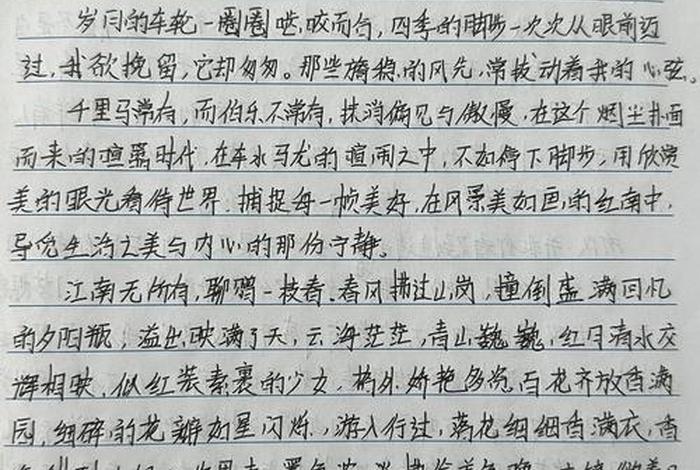 岁月的车轮一圈圈 ，四季的脚步一次次从眼前迈
过，我欲挽留，它却匆匆。那些旖旎的风光，常拨动着我的心弦。
千里马常有，而伯乐不常有，抹消偏见与傲慢，在这个烟尘扑面
而来的喧嚣时代，在车水马龙的喧闹之中，不如停下脚步，用欣赏
美的眼光看待世界，捕捉每一帧美好，在风景美如画的红南中，
寻觅生活之美与内心的那份宁静。
江南无所有，聊赠一枝春。春风拂过山岗，撞倒盛满回忆
的夕阳瓶，溢出映满了天，云海茫茫，青山巍巍，红日清水交
辉相映，似红装素裹的少女，格外娇艳多姿，百花齐放香满
园，细碎的花瓣如星闪烁，游人行过，落花细细香满衣，香